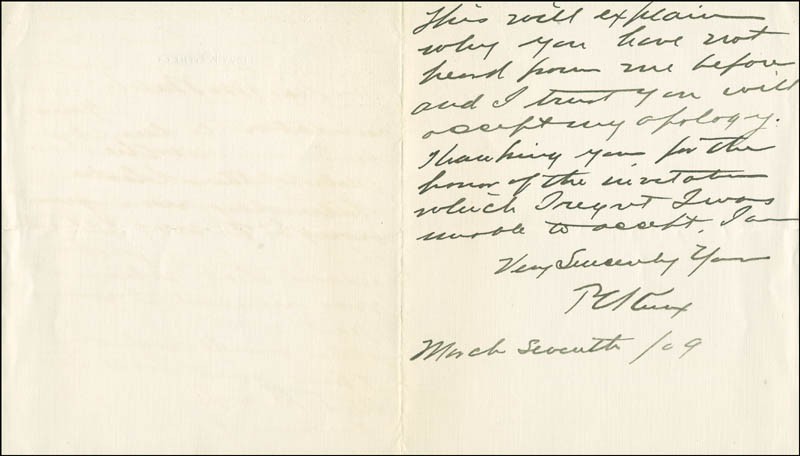 This will explain
why you have not
heard from me before
and I trust you will
accept my apology.
Thanking you for the
honor of the invitation
which I regret I was
unable to accept, I am
Very Sincerely Yours
P C Knox
March Seventh /09